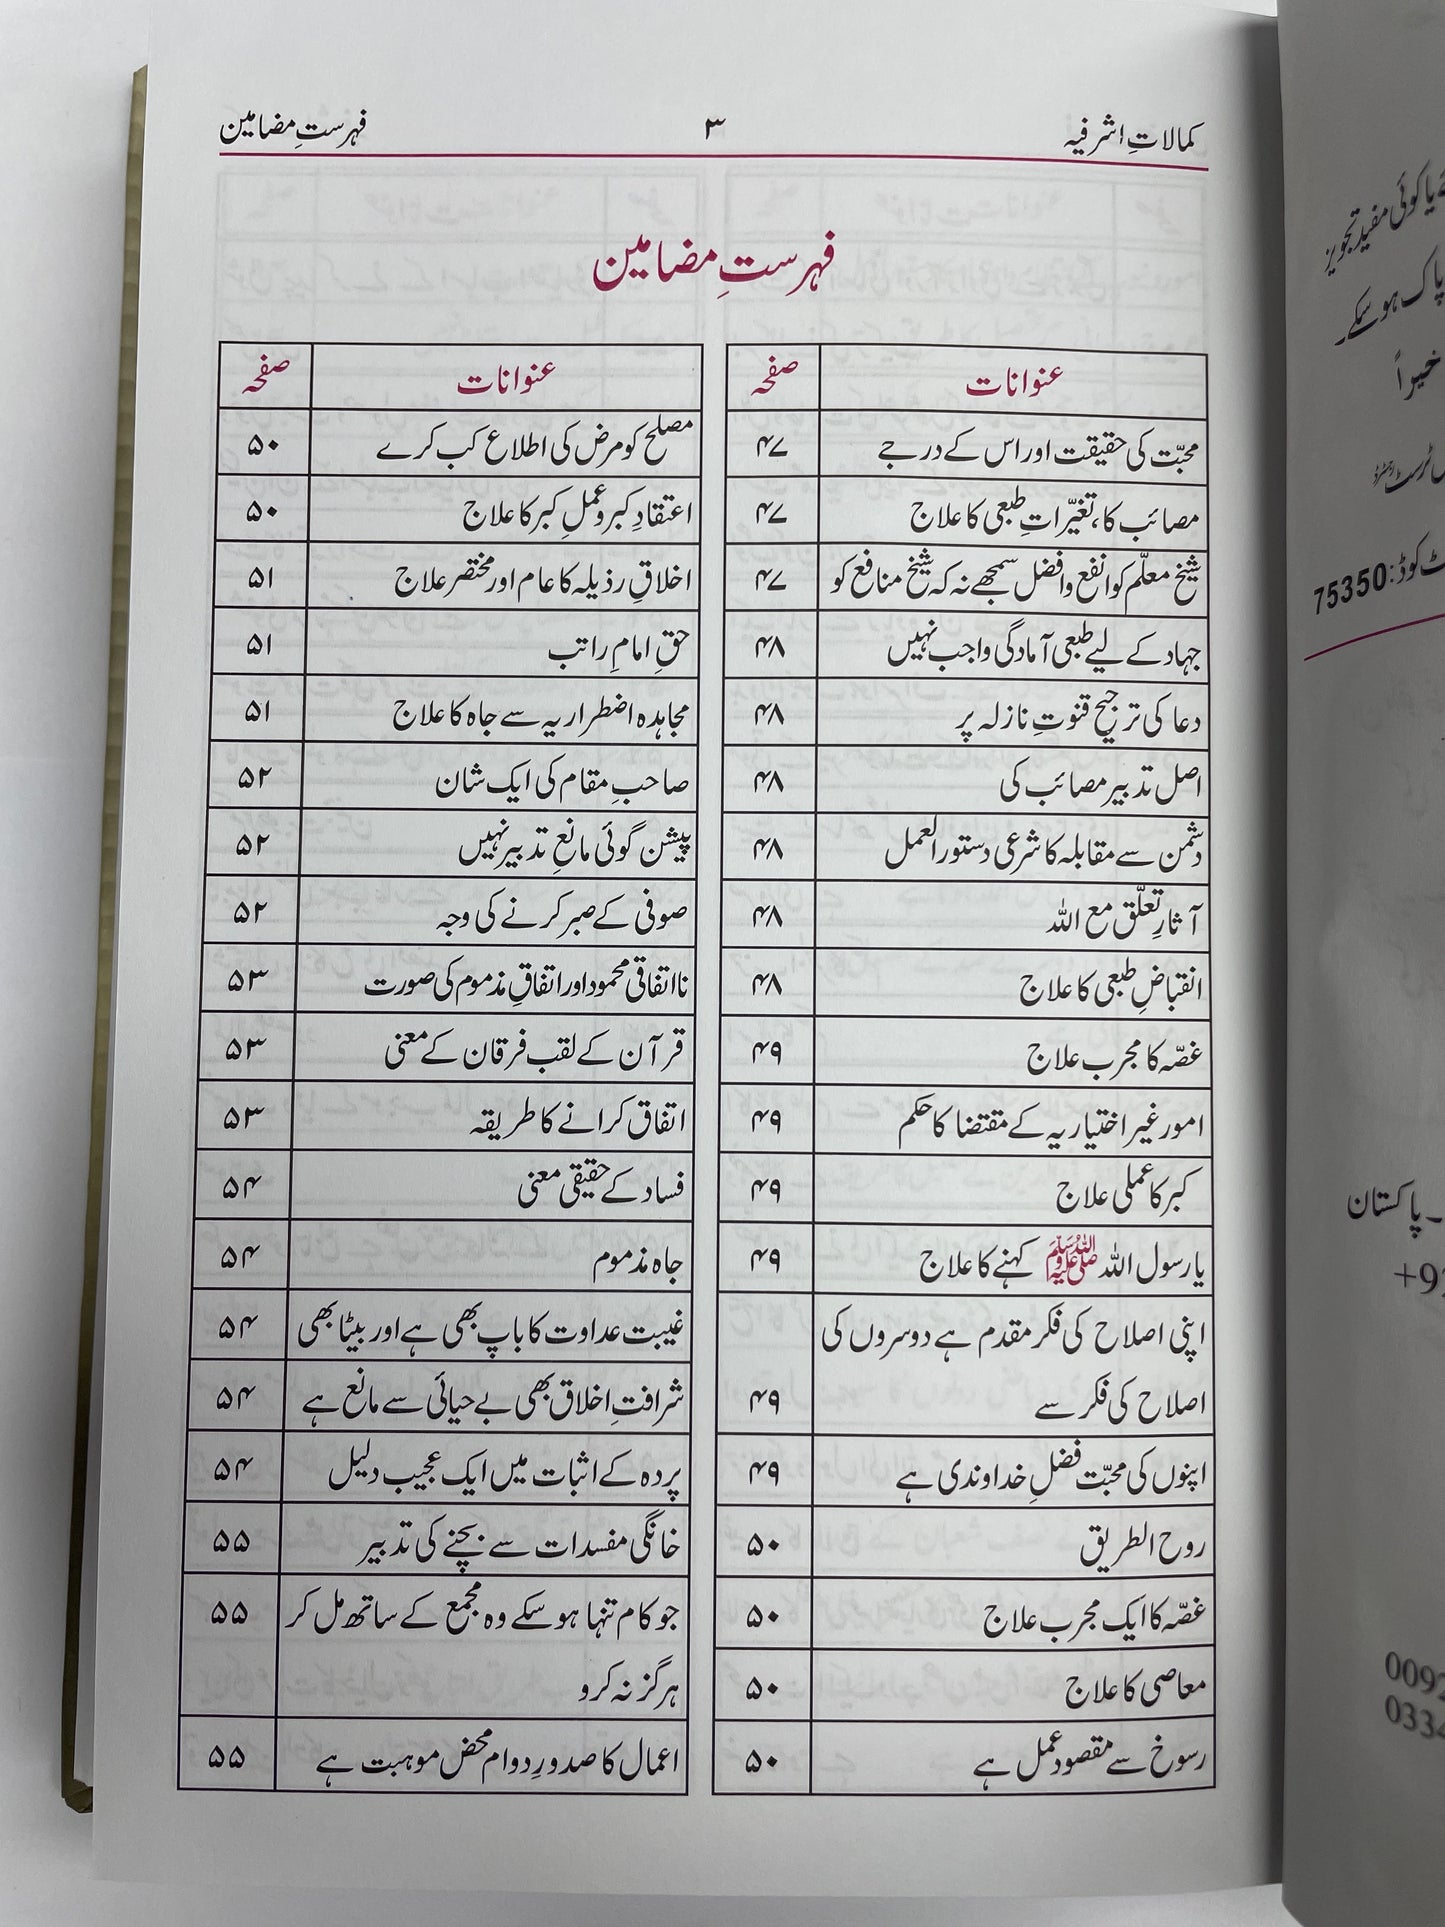 کمالاتِ اشرفیہ ۳ فہرستِ مضامین
فہرستِ مضامین
عنوانات صفحہ
محبّت کی حقیقت اور اس کے درجے ۴۷
مصائب کا، تغیّراتِ طبعی کا علاج ۴۷
شیخ معلّم کو انفع وافضل سمجھے نہ کہ شیخ منافع کو ۴۷
جہاد کے لیے طبعی آمادگی واجب نہیں ۴۸
دعا کی ترجیح قنوتِ نازلہ پر ۴۸
اصل تدبیر مصائب کی ۴۸
دشمن سے مقابلہ کا شرعی دستور العمل ۴۸
آثارِ تعلّق مع اللہ ۴۸
انقباضِ طبعی کا علاج ۴۸
غصّہ کا مجرب علاج ۴۹
امور غیر اختیاریہ کے مقتضا کا حکم ۴۹
کبر کا عملی علاج ۴۹
یا رسول اللہ ﷺ کہنے کا علاج ۴۹
اپنی اصلاح کی فکر مقدم ہے دوسروں کی
اصلاح کی فکر سے ۴۹
اپنوں کی محبّت فضلِ خداوندی ہے ۴۹
روح الطریق ۵۰
غصّہ کا ایک مجرب علاج ۵۰
معاصی کا علاج ۵۰
رسوخ سے مقصود عمل ہے ۵۰
عنوانات صفحہ
مصلح کو مرض کی اطلاع کب کرے ۵۰
اعتقادِ کبر و عملِ کبر کا علاج ۵۰
اخلاقِ رذیلہ کا عام اور مختصر علاج ۵۱
حقِ امامِ راتب ۵۱
مجاہدہ اضطراریہ سے جاہ کا علاج ۵۱
صاحبِ مقام کی ایک شان ۵۲
پیشن گوئی مانعِ تدبیر نہیں ۵۲
صوفی کے صبر کرنے کی وجہ ۵۲
نااتفاقی محمود اور اتفاقِ مذموم کی صورت ۵۳
قرآن کے لقب فرقان کے معنی ۵۳
اتفاق کرانے کا طریقہ ۵۳
فساد کے حقیقی معنی ۵۴
جاہ مذموم ۵۴
غیبت عداوت کا باپ بھی ہے اور بیٹا بھی ۵۴
شرافتِ اخلاق بھی بے حیائی سے مانع ہے ۵۴
پردہ کے اثبات میں ایک عجیب دلیل ۵۴
خانگی مفسدات سے بچنے کی تدبیر ۵۵
جو کام تنہا ہوسکے وہ مجمع کے ساتھ مل کر ۵۵
ہرگز نہ کرو
اعمال کا صدورِ دوام محض موہبت ہے ۵۵
یا کوئی مفید تجویز
پاک ہوسکے۔
خیراً
ٹرسٹ
کوڈ: 75350
۔ پاکستان
+92
0092
0334